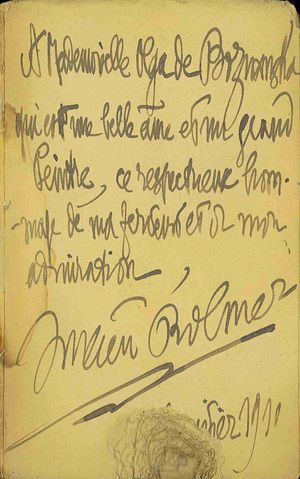 A Mademoiselle Olga de Boznanska
qui est une belle âme et un grand
Peintre, ce respectueux hom-
-mage de ma ferveur et de mon
admiration,
Lucien Rolmer